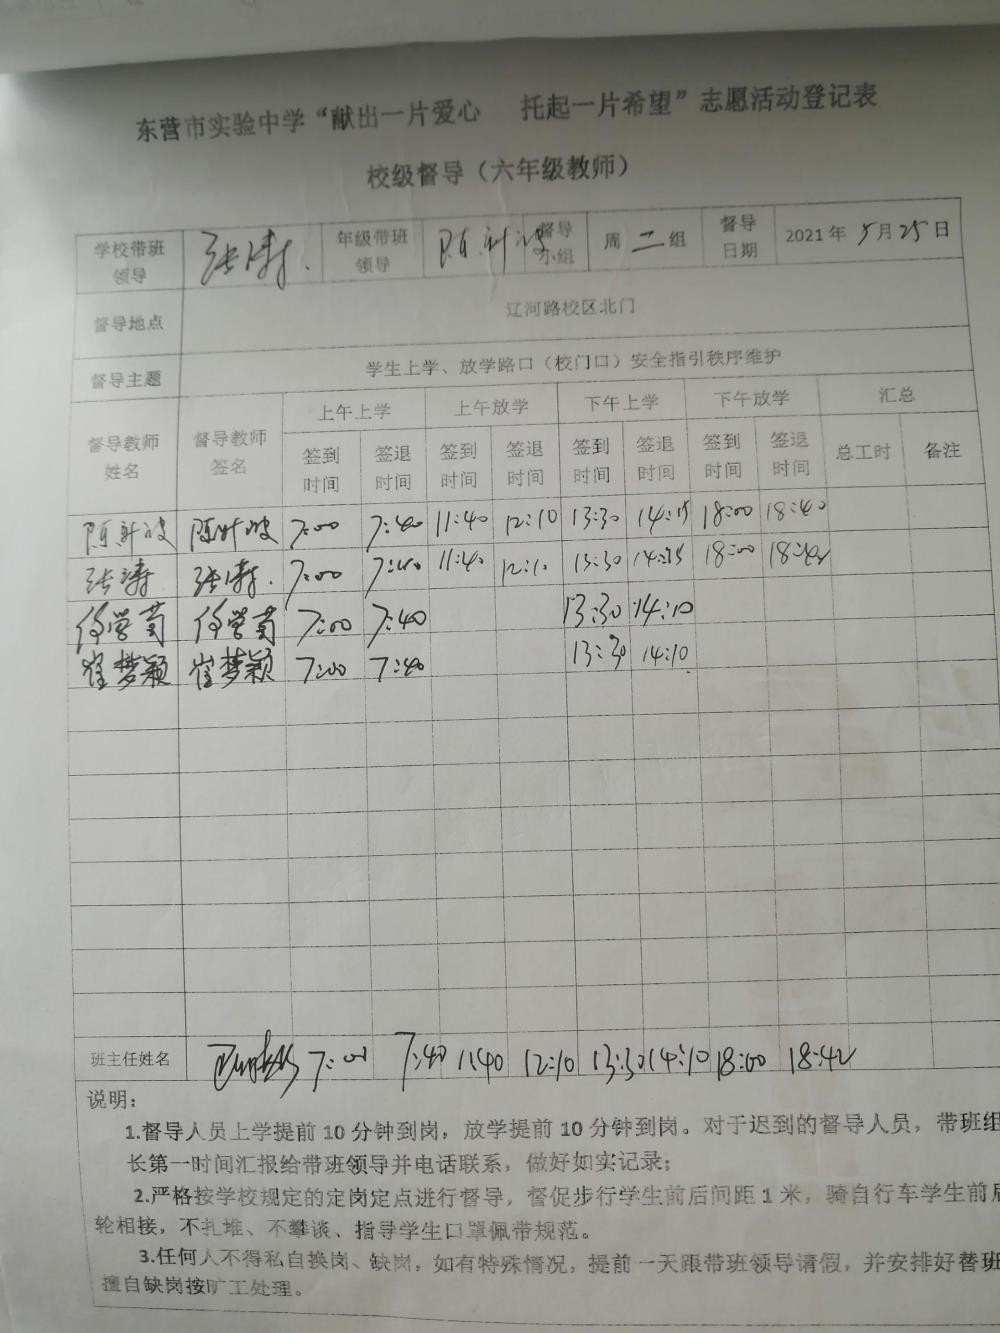 东营市实验中学“献出一片爱心 托起一片希望”志愿活动登记表
校级督导（六年级教师）
学校带班领导 张涛 年级带班领导 陈新波 督导小组 周二组 督导日期 2021年5月25日
督导地点 辽河路校区北门
督导主题 学生上学、放学路口（校门口）安全指引秩序维护
督导教师姓名 督导教师签名 上午上学 上午放学 下午上学 下午放学 汇总
签到时间 签退时间 签到时间 签退时间 签到时间 签退时间 签到时间 签退时间 总工时 备注
陈新波 陈新波 7:00 7:40 11:40 12:10 13:30 14:15 18:00 18:40
张涛 张涛 7:00 7:40 11:40 12:10 13:30 18:00
学菊 学菊 7:00 7:40 13:30 14:10
崔梦颖 崔梦颖 7:00 7:40 13:30 14:10
班主任姓名 7:00 7:40 11:40 12:10 13:30 14:10 18:00 18:40
说明：
1.督导人员上学提前10分钟到岗，放学提前10分钟到岗。对于迟到的督导人员，带班组
长第一时间汇报给带班领导并电话联系，做好如实记录；
2.严格按学校规定的定岗定点进行督导，督促步行学生前后间距1米，骑自行车学生前后
轮相接，不扎堆、不攀谈、指导学生口罩佩带规范。
3.任何人不得私自换岗、缺岗，如有特殊情况，提前一天跟带班领导请假，并安排好替班
擅自缺岗按旷工处理。